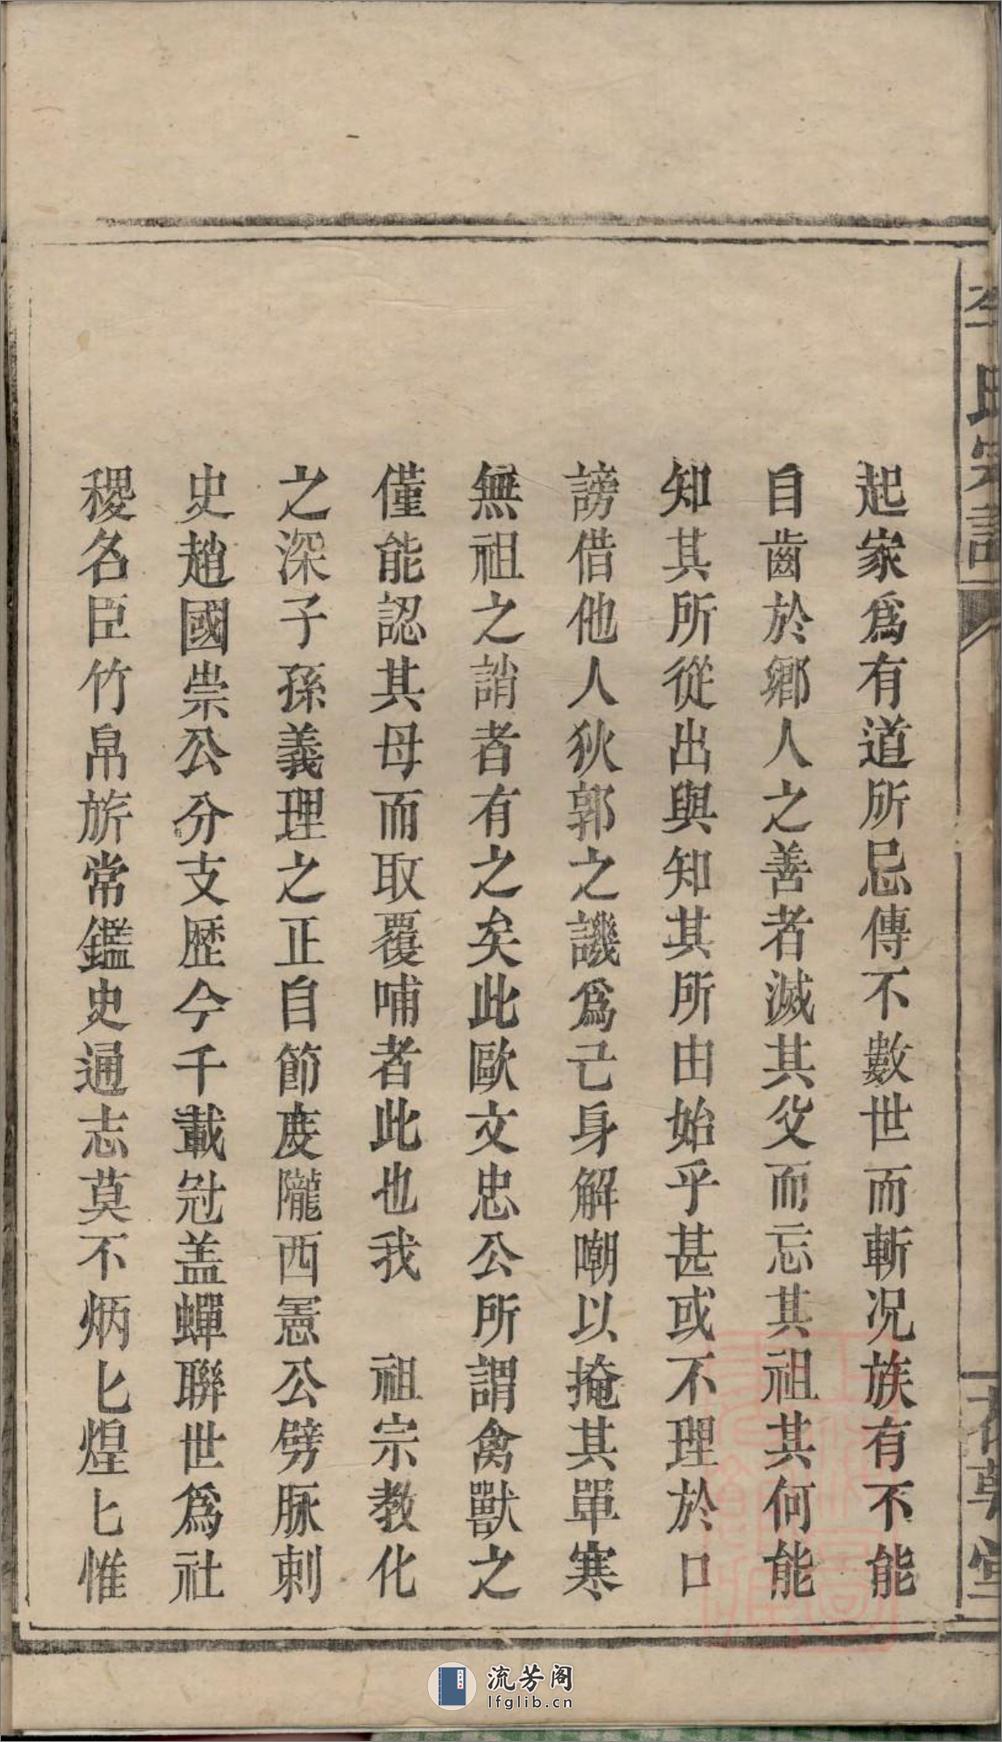 起家爲有道所忌傳不數世而斬况族有不能
自齒於鄉人之善者滅其父而忘其祖其何能
知其所從出與知其所由始乎甚或不理於口
謗借他人狄郭之譏爲己身解嘲以掩其單寒
無祖之誚者有之矣此歐文忠公所謂禽獸之
僅能認其母而取覆哺者此也我　祖宗教化
之深子孫義理之正自節度隴西憲公劈脉刺
史趙國祟公分支歷今千載冠盖蟬聯世爲社
稷名臣竹帛旂常鑑史通志莫不炳匕煌匕惟
氏宗譜
堂
流芳阁
lfglib.cn